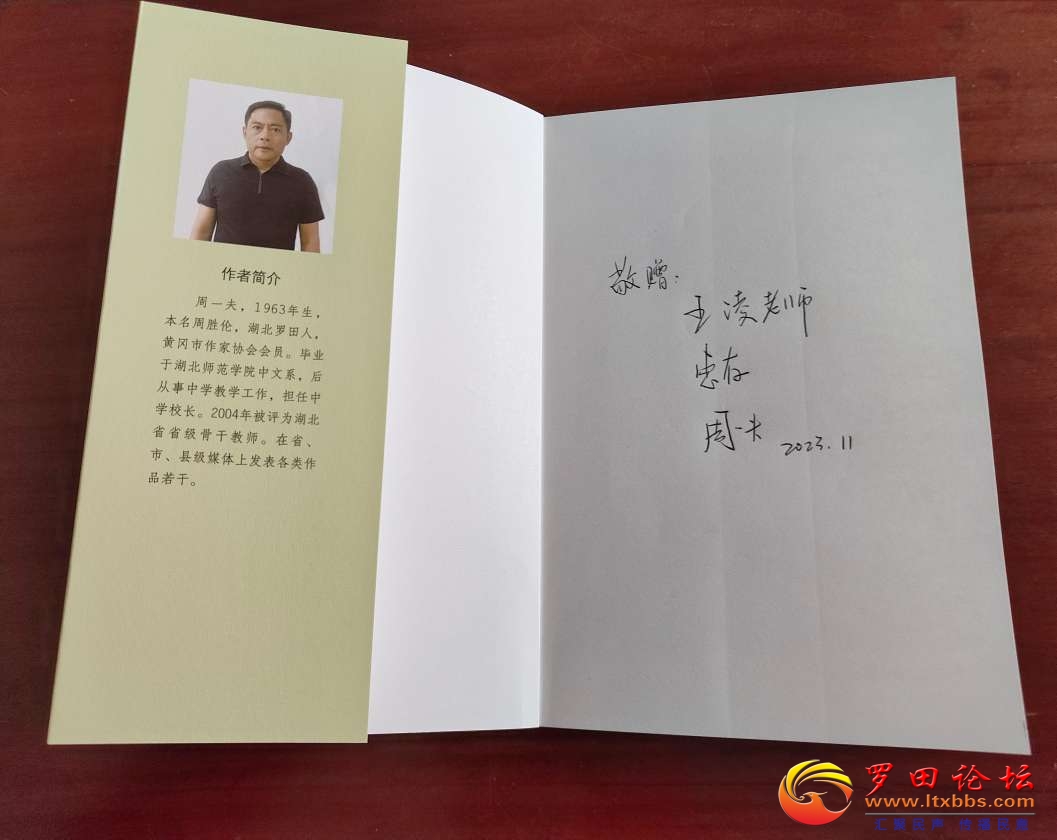 作者简介
周一夫，1963年生，
本名周胜伦，湖北罗田人，
黄冈市作家协会会员。毕业
于湖北师范学院中文系，后
从事中学教学工作，担任中
学校长。2004年被评为湖北
省省级骨干教师。在省、
市、县级媒体上发表各类作
品若干。
敬赠：
王凌老师
惠存
周一夫 2023.11
罗田论坛
www.ltxbbs.com